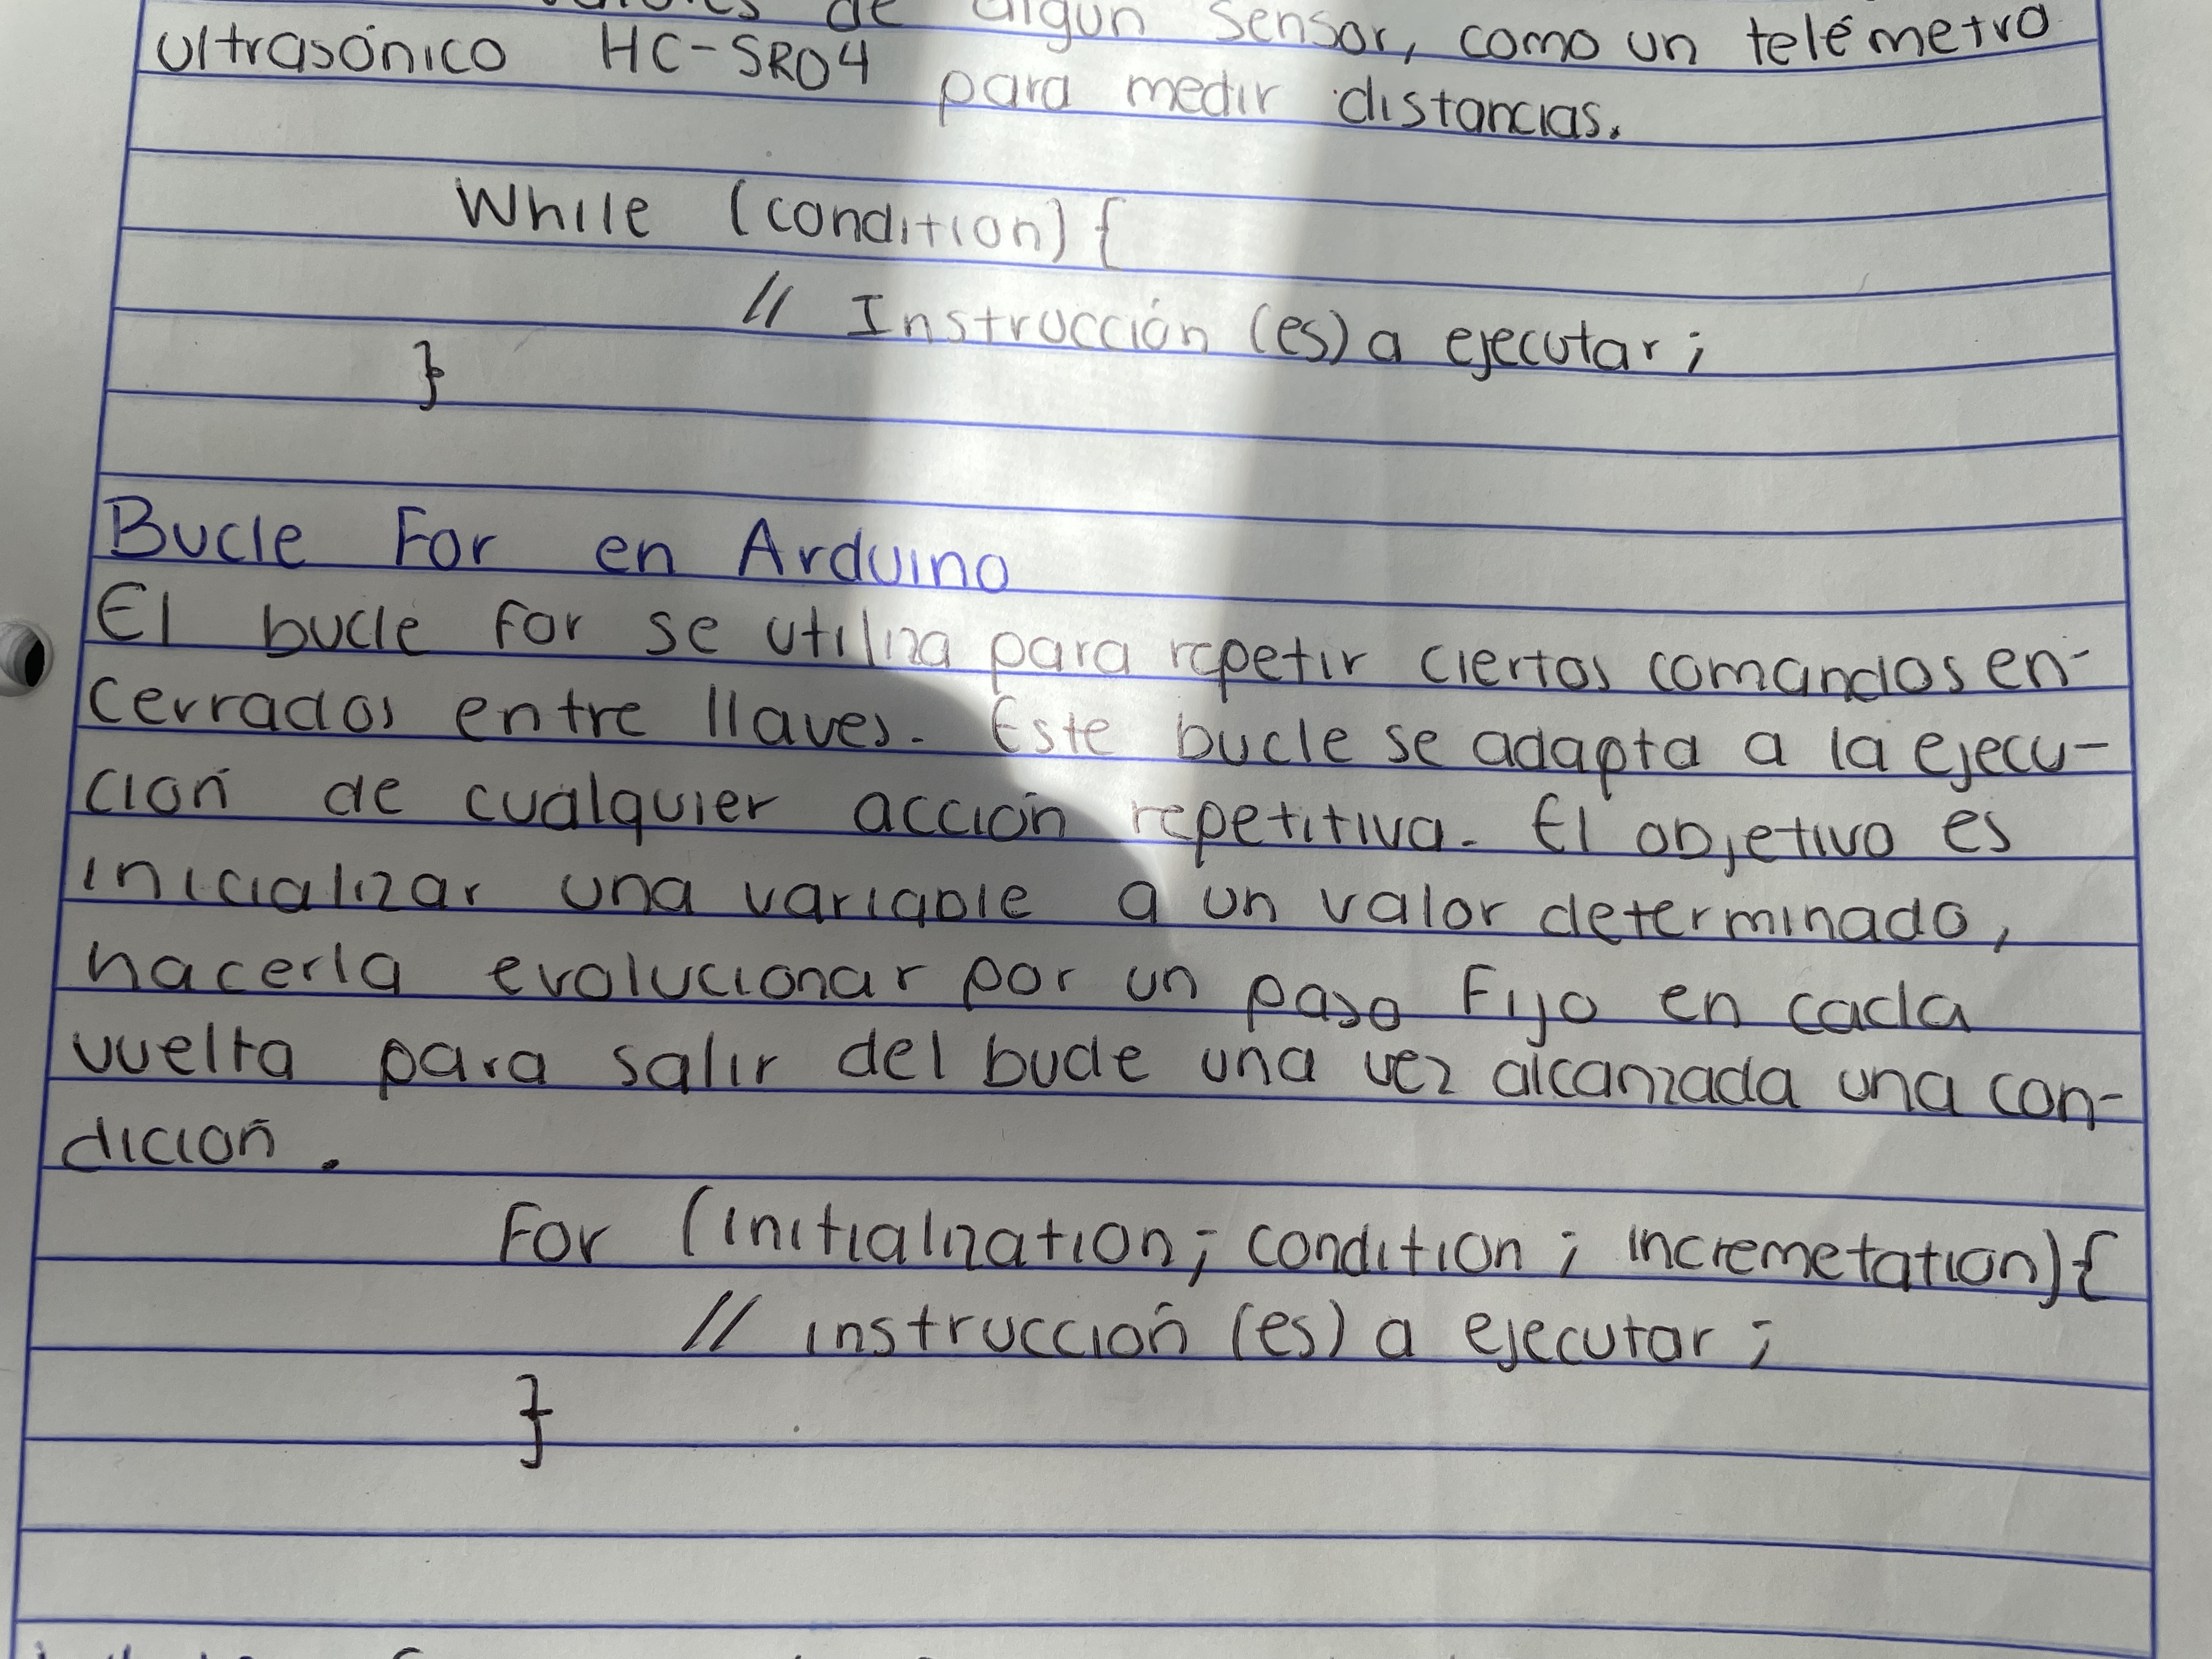 de algún sensor, como un telémetro
ultrasónico HC-SR04 para medir distancias.
While (condition) {
// Instrucción (es) a ejecutar;
}
Bucle For en Arduino
El bucle for se utiliza para repetir ciertos comandos en-
cerrados entre llaves. Este bucle se adapta a la ejecu-
ción de cualquier acción repetitiva. El objetivo es
inicializar una variable a un valor determinado,
hacerla evolucionar por un paso fijo en cada
vuelta para salir del bucle una vez alcanzada una con-
dición.
For (initialization; condition; incremetation) {
// instrucción (es) a ejecutar;
}